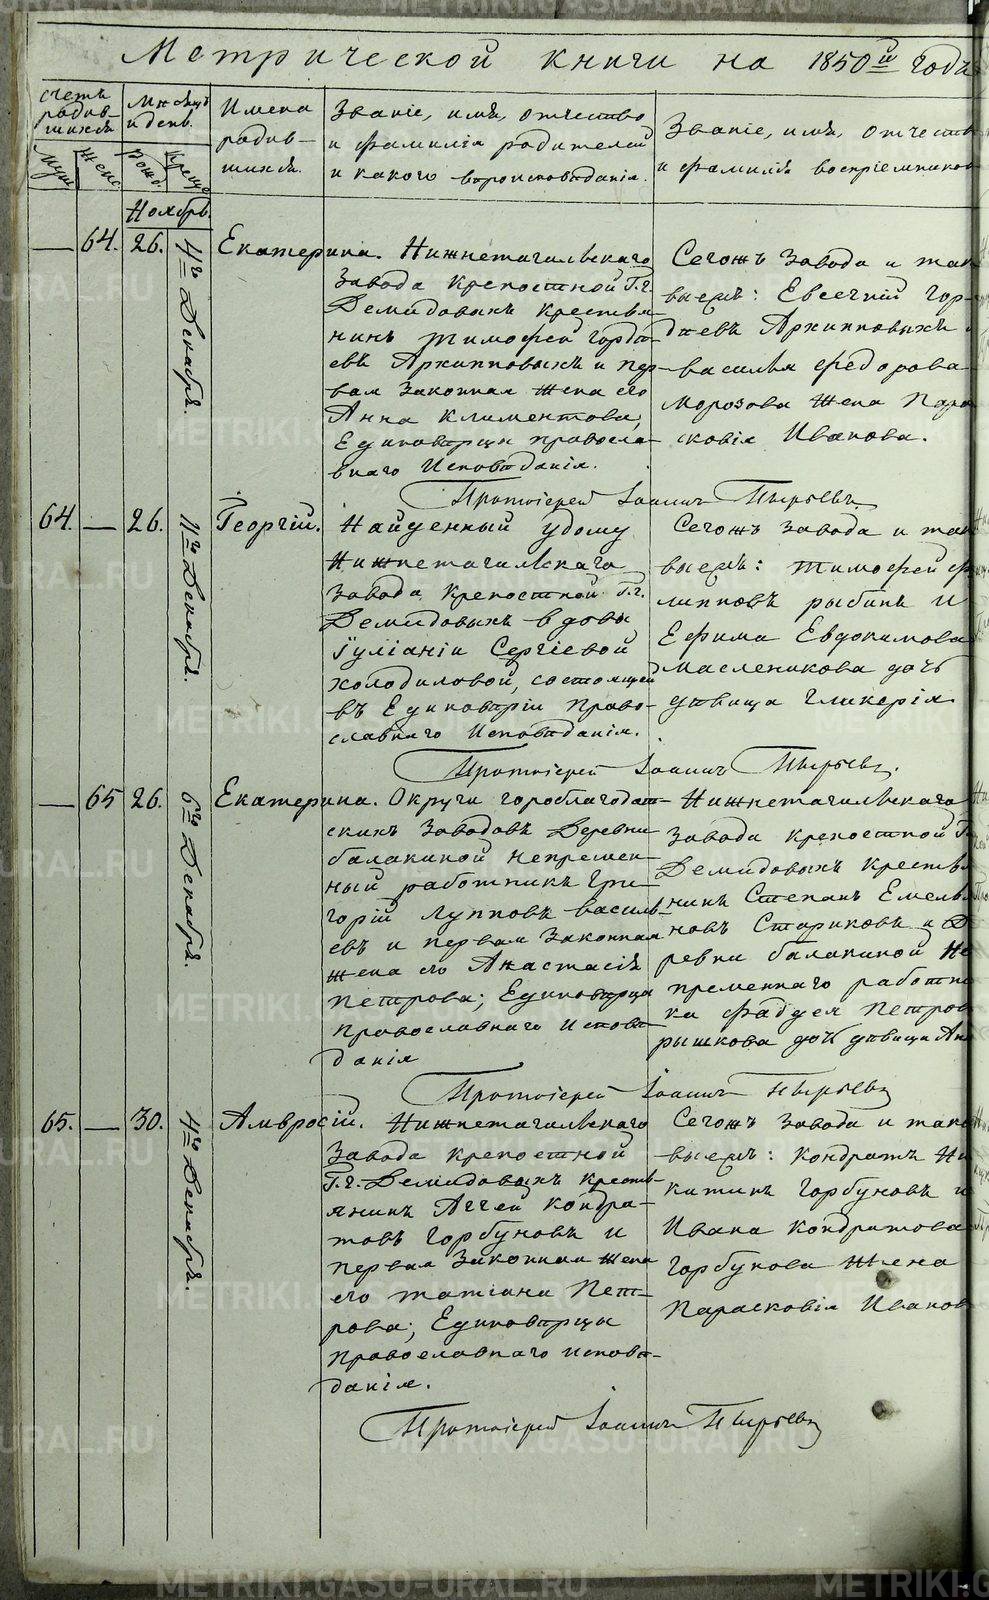 Метрической книги на 1850й годъ
Счетъ родив-шихся
Муж Женс
Мѣсяцъ и день.
Рожд Крещ
Имена родив-шихся.
Званіе, имя, отчество и фамилія родителей и какого вѣроисповѣданія.
Званіе, имя, отчество и фамилія воспріемниковъ
Ноябрь.
— 64. 26. 4го Декабря. Екатерина.
Нижнетагильскаго
Завода крепостной Г.г.
Демидовыхъ крестья-
нинъ Тимофей Горде-
евъ Архиповыхъ и пер-
вая Законная Жена его
Анна Климентова,
Единовѣрцы правосла-
внаго Исповѣданія.
Сегожъ Завода и так
выежъ: Евсегній Гор-
дѣевъ Архиповыхъ и
Василья Федорова
Морозова Жена Пара
сковія Иванова.
Протоіерей Іоаннъ Пырьевъ
64. — 26. 11го Декабря. Георгій.
Найденный у дому
Нижнетагильскаго
Завода крепостной Г.г.
Демидовыхъ вдовы
Іуліаніи Сергіевой
Холодиловой, состоящей
въ Единовѣріи Право-
славнаго Исповѣданія.
Сегожъ Завода и так
выежъ: Тимофей Фи
липповъ рыбинъ и
Ефима Евдокимова
Масленикова дочь
дѣвица Гликерія.
Протоіерей Іоаннъ Пырьевъ.
— 65 26. 6го Декабря. Екатерина.
Округи гороблагодат-
скихъ Заводовъ Деревни
балакиной непремен-
ный работникъ Гри-
горій Лупповъ василь-
евъ и первая Законная
жена его Анастасія
Петрова; Единовѣрцы
православнаго исповѣ-
данія
Нижнетагильскаго
Завода крепостной Г.
Демидовыхъ крестья
нинъ Степанъ Емелья
новъ Стариковъ и Де
ревни балакиной Не
пременнаго работни
ка Фаддея Петров
рышкова дочь дѣвица Ан
Протоіерей Іоаннъ Пырьевъ
65. — 30. 4го Декабря. Амвросій.
Нижнетагильскаго
Завода крепостной
Г.г. Демидовыхъ кресть-
янинъ Аггей Кондра-
товъ Горбуновъ и
первая Законная жена
его Татіана Пет-
рова; Единовѣрцы
православнаго исповѣ-
данія.
Сегожъ Завода и тако
выежъ: Кондратъ Ни
китинъ Горбуновъ и
Ивана Кондратова
Горбунова Жена
Парасковія Иванов
Протоіерей Іоаннъ Пырьевъ
METRIKI.GASO-URAL.RU